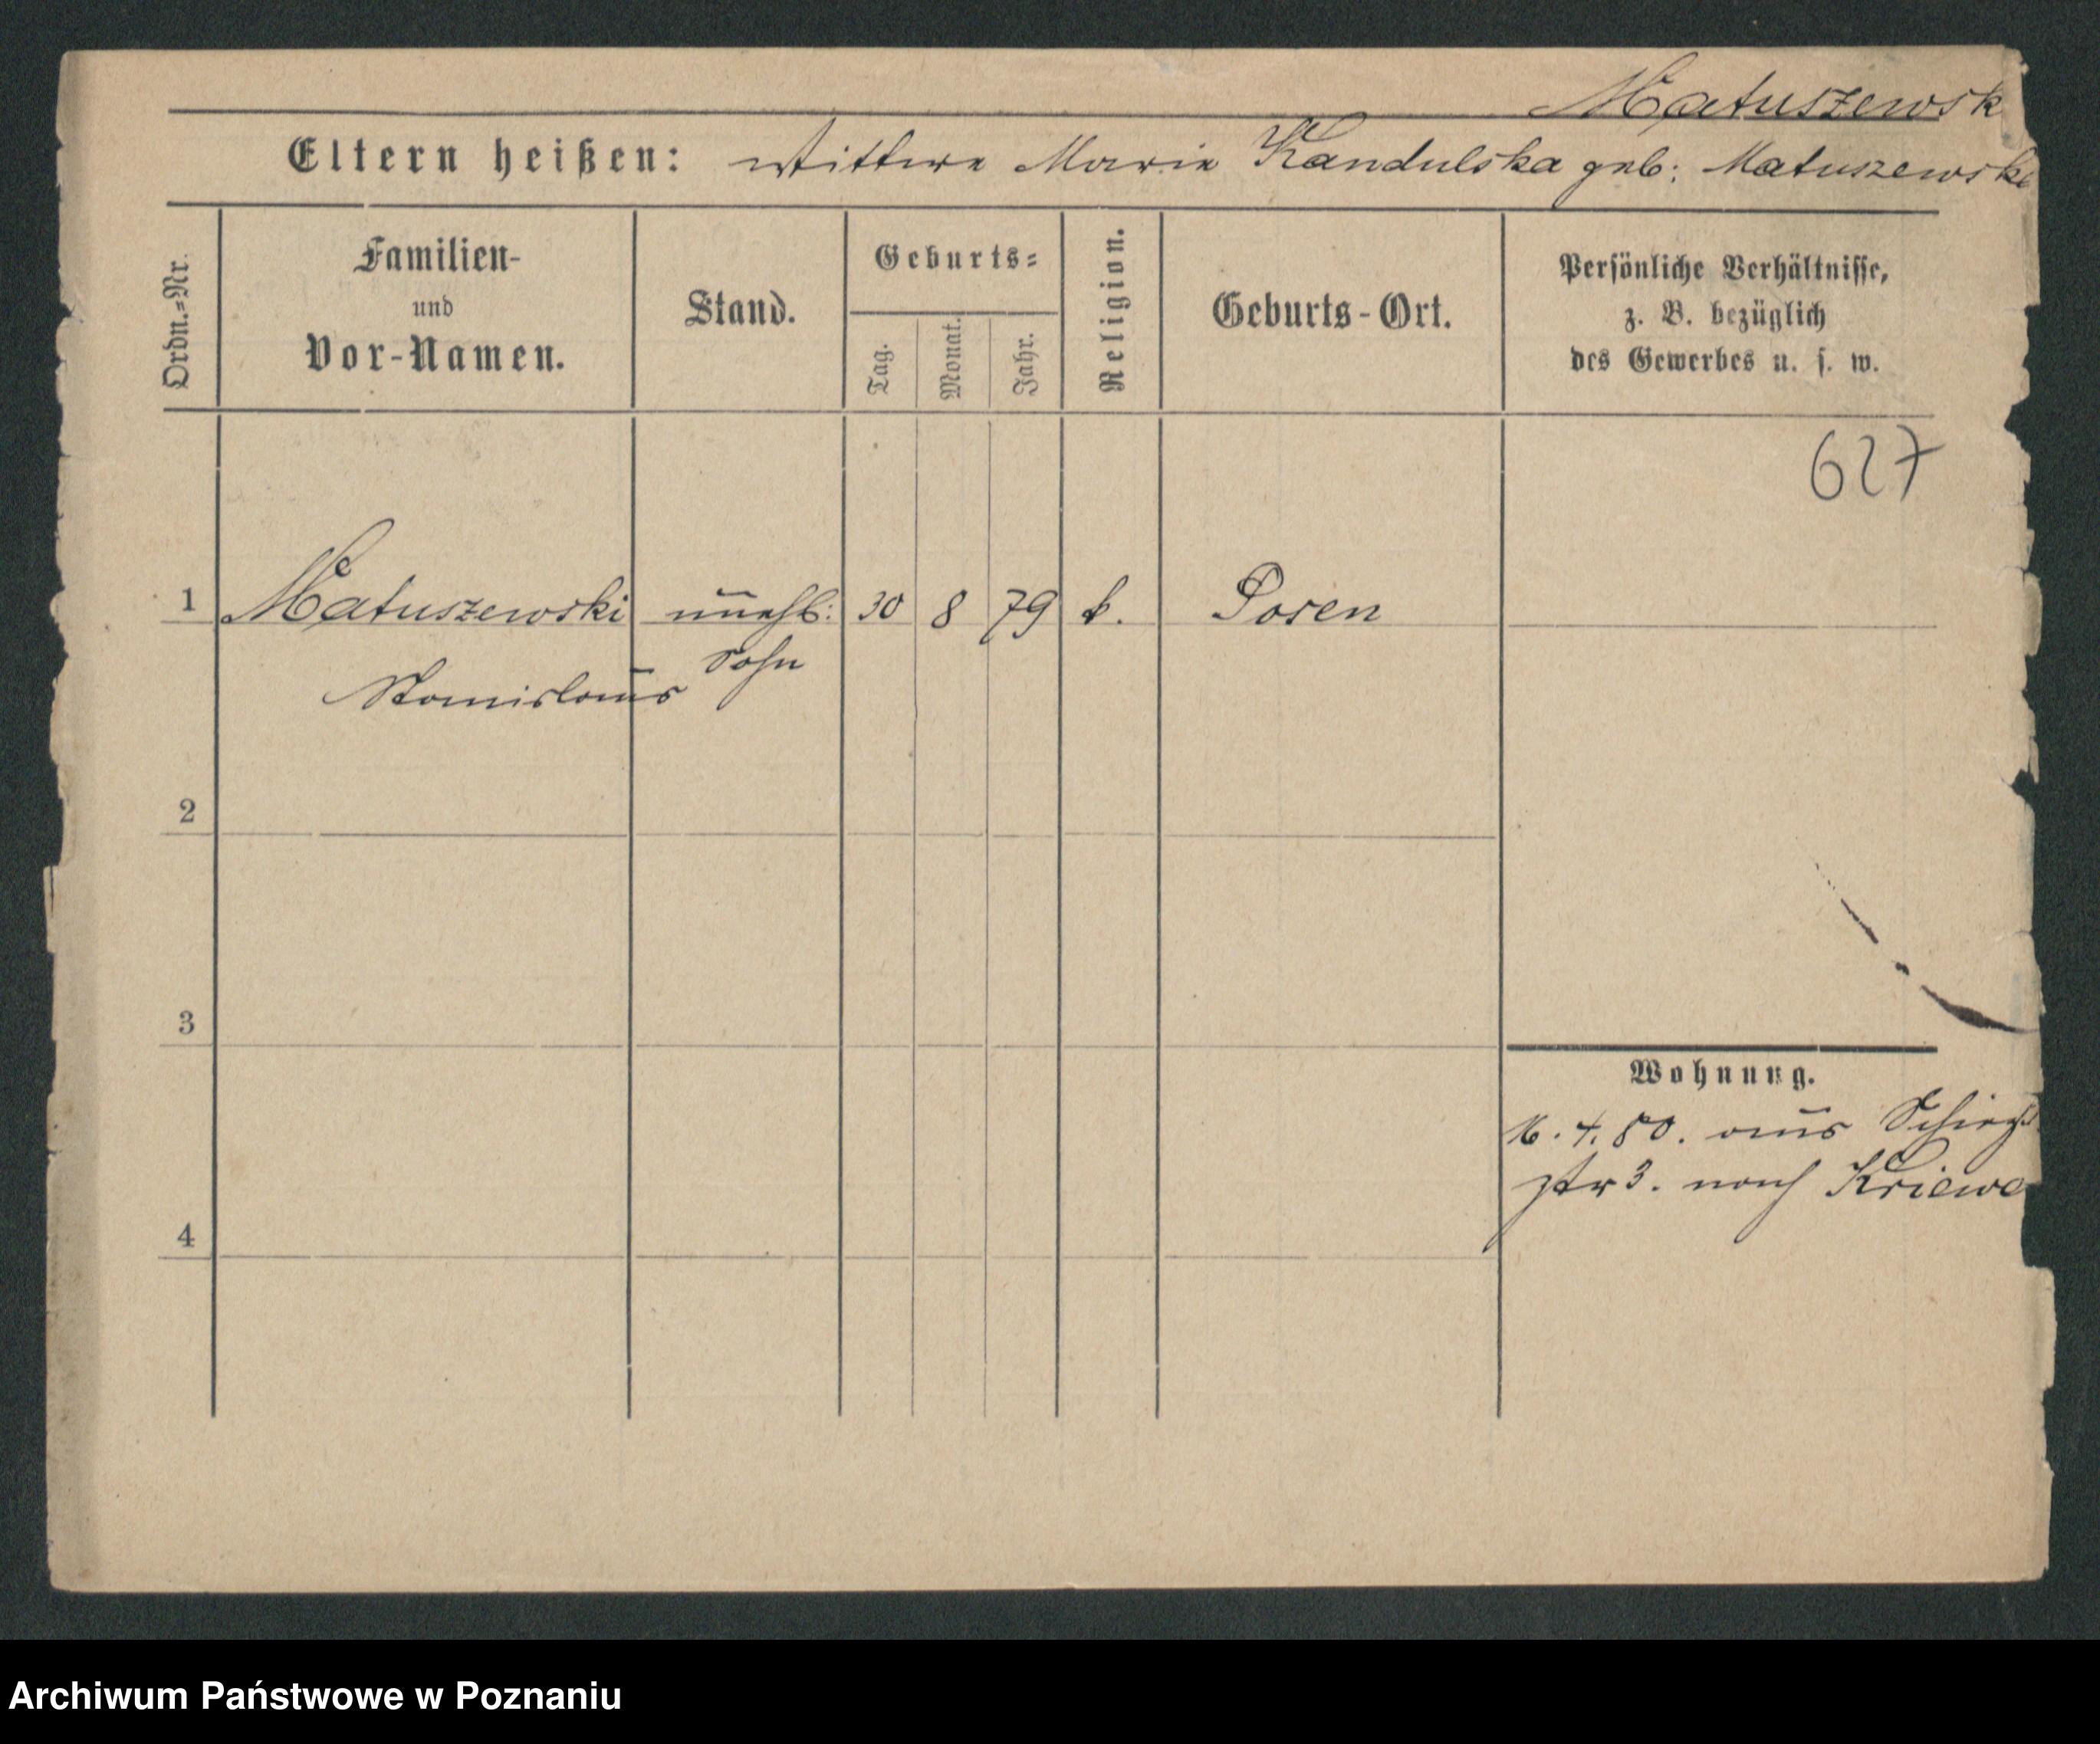 Matuszewsk
Eltern heißen: Wittwe Marie Kandulska geb: Matuszewska
Ordn.-Nr.
Familien-
und
Vor-Namen.
Stand.
Geburts-
Tag.
Monat.
Jahr.
Religion.
Geburts-Ort.
Persönliche Verhältnisse,
z. B. bezüglich
des Gewerbes u. s. w.
627
1 Matuszewski unehl: 30 8 79 k. Posen
Sohn
Stanislaus
2
3
Wohnung.
16. 4. 80. aus
str 3. nach Kriewe
4
Archiwum Państwowe w Poznaniu